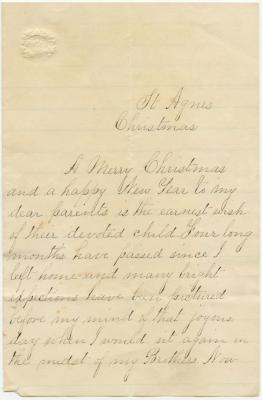 St Agnes
Christmas
A Merry Christmas
and a happy New Year to my
dear parents is the earnest wish
of their devoted child Four long
months have passed since I
left home and many bright
have been pictured
before my mind of that joyous
day when I would sit again in
the midst of my Brothers Now